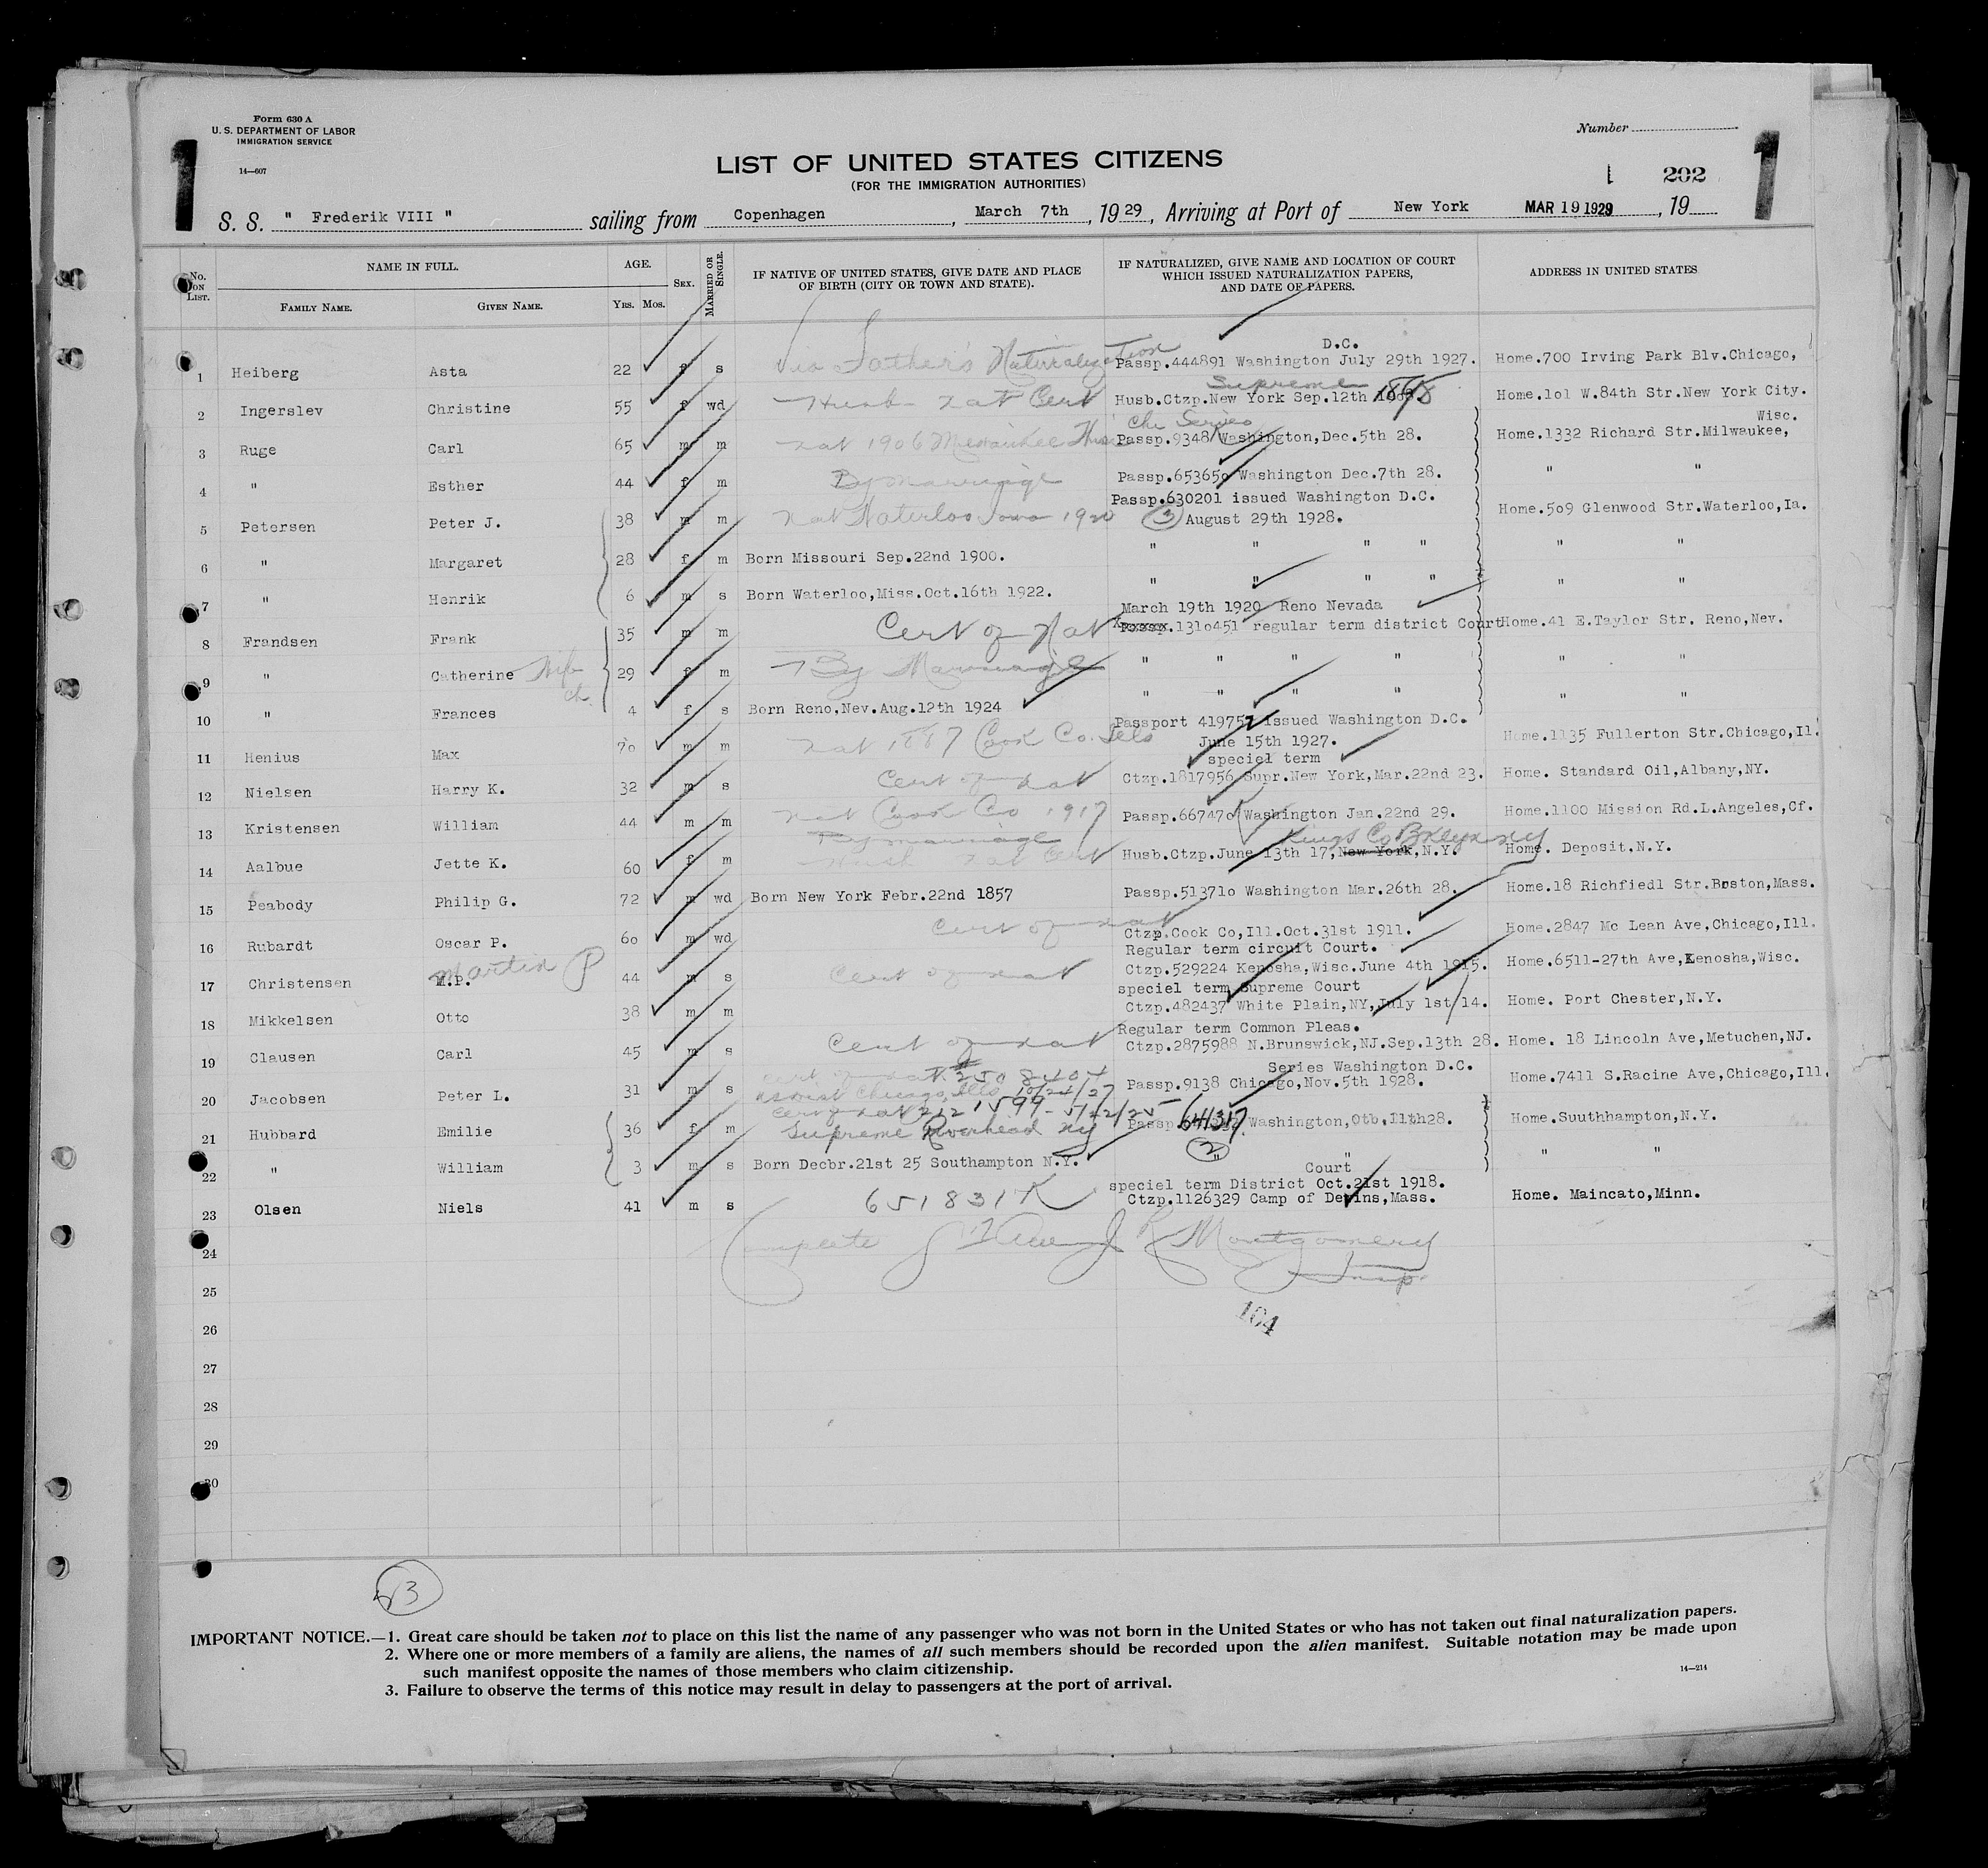 Form 630 A
U. S. DEPARTMENT OF LABOR
IMMIGRATION SERVICE
14—607
Number
1 1
LIST OF UNITED STATES CITIZENS
(FOR THE IMMIGRATION AUTHORITIES)
1 202
S. S. " Frederik VIII " sailing from Copenhagen , March 7th , 1929, Arriving at Port of New York MAR 19 1929 , 19
No. ON LIST.
NAME IN FULL.
FAMILY NAME. GIVEN NAME.
AGE.
YRS. MOS.
SEX.
MARRIED OR SINGLE.
IF NATIVE OF UNITED STATES, GIVE DATE AND PLACE
OF BIRTH (CITY OR TOWN AND STATE).
IF NATURALIZED, GIVE NAME AND LOCATION OF COURT
WHICH ISSUED NATURALIZATION PAPERS,
AND DATE OF PAPERS.
ADDRESS IN UNITED STATES
D.C.
1 Heiberg Asta 22 f s Via Father's Naturalization Passp.444891 Washington July 29th 1927. Home.700 Irving Park Blv.Chicago,
Supreme 1898
2 Ingerslev Christine 55 f wd Husb nat Cert Husb.Ctzp.New York Sep.12th Home.1o1 W.84th Str.New York City.
Chi Series Wisc.
3 Ruge Carl 65 m m nat 1906 Milwaukee Passp.9348 Washington,Dec.5th 28. Home.1332 Richard Str.Milwaukee,
4 " Esther 44 f m By marriage Passp.65365o Washington Dec.7th 28. " "
Passp.630201 issued Washington D.C.
5 Petersen Peter J. 38 m m nat Waterloo Iowa 1920 (3) August 29th 1928. Home.5o9 Glenwood Str.Waterloo,Ia.
6 " Margaret 28 f m Born Missouri Sep.22nd 1900. " " " " " "
7 " Henrik 6 m s Born Waterloo,Miss.Oct.16th 1922. " " " " " "
March 19th 1920 Reno Nevada
8 Frandsen Frank 35 m m Cert of Nat .131o451 regular term district Court Home.41 E.Taylor Str. Reno,Nev.
9 " Catherine Wife 29 f m By Marriage " " " " " "
ch.
10 " Frances 4 f s Born Reno,Nev.Aug.12th 1924 " " " " " "
Passport 419757 issued Washington D.C.
11 Henius Max 7o m m nat 1887 Cook Co. Ills June 15th 1927. Home.1135 Fullerton Str.Chicago,Il.
speciel term
12 Nielsen Harry K. 32 m s Cert of nat Ctzp.1817956 Supr.New York,Mar.22nd 23. Home. Standard Oil,Albany,NY.
13 Kristensen William 44 m m nat Cook Co 1917 Passp.66747o Washington Jan.22nd 29. Home.1100 Mission Rd.L.Angeles,Cf.
By marriage Kings Co Bklyn NY
14 Aalbue Jette K. 60 f m Husb nat Cert Husb.Ctzp.June 13th 17,New York,N.Y. Home. Deposit.N.Y.
15 Peabody Philip G. 72 m wd Born New York Febr.22nd 1857 Passp.51371o Washington Mar.26th 28. Home.18 Richfiedl Str.Boston,Mass.
16 Rubardt Oscar P. 6o m wd Cert of nat Ctzp.Cook Co,Ill.Oct.31st 1911. Home.2847 Mc Lean Ave,Chicago,Ill.
Regular term circuit Court.
Martin P
17 Christensen M.P. 44 m s Cert of nat Ctzp.529224 Kenosha,Wisc.June 4th 1915. Home.6511-27th Ave,Kenosha,Wisc.
speciel term Supreme Court
18 Mikkelsen Otto 38 m m Ctzp.482437 White Plain,NY,July 1st/14. Home. Port Chester,N.Y.
Regular term Common Pleas.
19 Clausen Carl 45 m s Cert of nat Ctzp.2875988 N.Brunswick,NJ.Sep.13th 28. Home. 18 Lincoln Ave,Metuchen,NJ.
Cert of nat # 2508404 Series Washington D.C.
20 Jacobsen Peter L. 31 m s US Dist Chicago Ills 10/24/27 Passp.9138 Chicago,Nov.5th 1928. Home.7411 S.Racine Ave,Chicago,Ill.
Cert of nat 2121599 - 5/22/25
21 Hubbard Emilie 36 f m Supreme Riverhead NY Passp. 641317 Washington,Otb.11th28. Home.Suuthhampton,N.Y.
22 " William 3 m s Born Decbr.21st 25 Southampton N.Y. (2) " " " "
Court
speciel term District Oct.21st 1918.
23 Olsen Niels 41 m s 651831K Ctzp.1126329 Camp of Devins,Mass. Home. Maincato,Minn.
24 Complete R Montgomery
Insp.
25
104
26
27
28
29
30
23
IMPORTANT NOTICE.—1. Great care should be taken not to place on this list the name of any passenger who was not born in the United States or who has not taken out final naturalization papers.
2. Where one or more members of a family are aliens, the names of all such members should be recorded upon the alien manifest. Suitable notation may be made upon
such manifest opposite the names of those members who claim citizenship.
14—214
3. Failure to observe the terms of this notice may result in delay to passengers at the port of arrival.